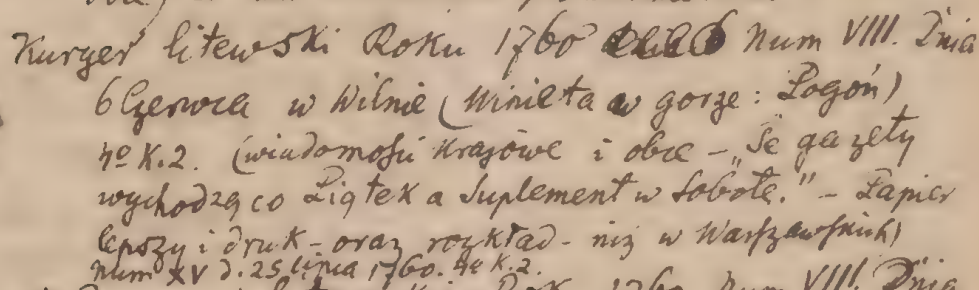 Kuryer litewski Roku 1760 Num VIII. Dnia
6 Czerwca w Wilnie (Winieta w gorze: Pogoń)
4º K.2. (wiadomości krajowe i obce – „Te gazety
wychodzą co Piątek a Suplement w Sobotę." – Papier
lepszy i druk – oraz rozkład – niż w Warszawskich)
Num XV d. 25 lipca 1760. 4º K.2.
Rok 1760 Num VIII. Dnia